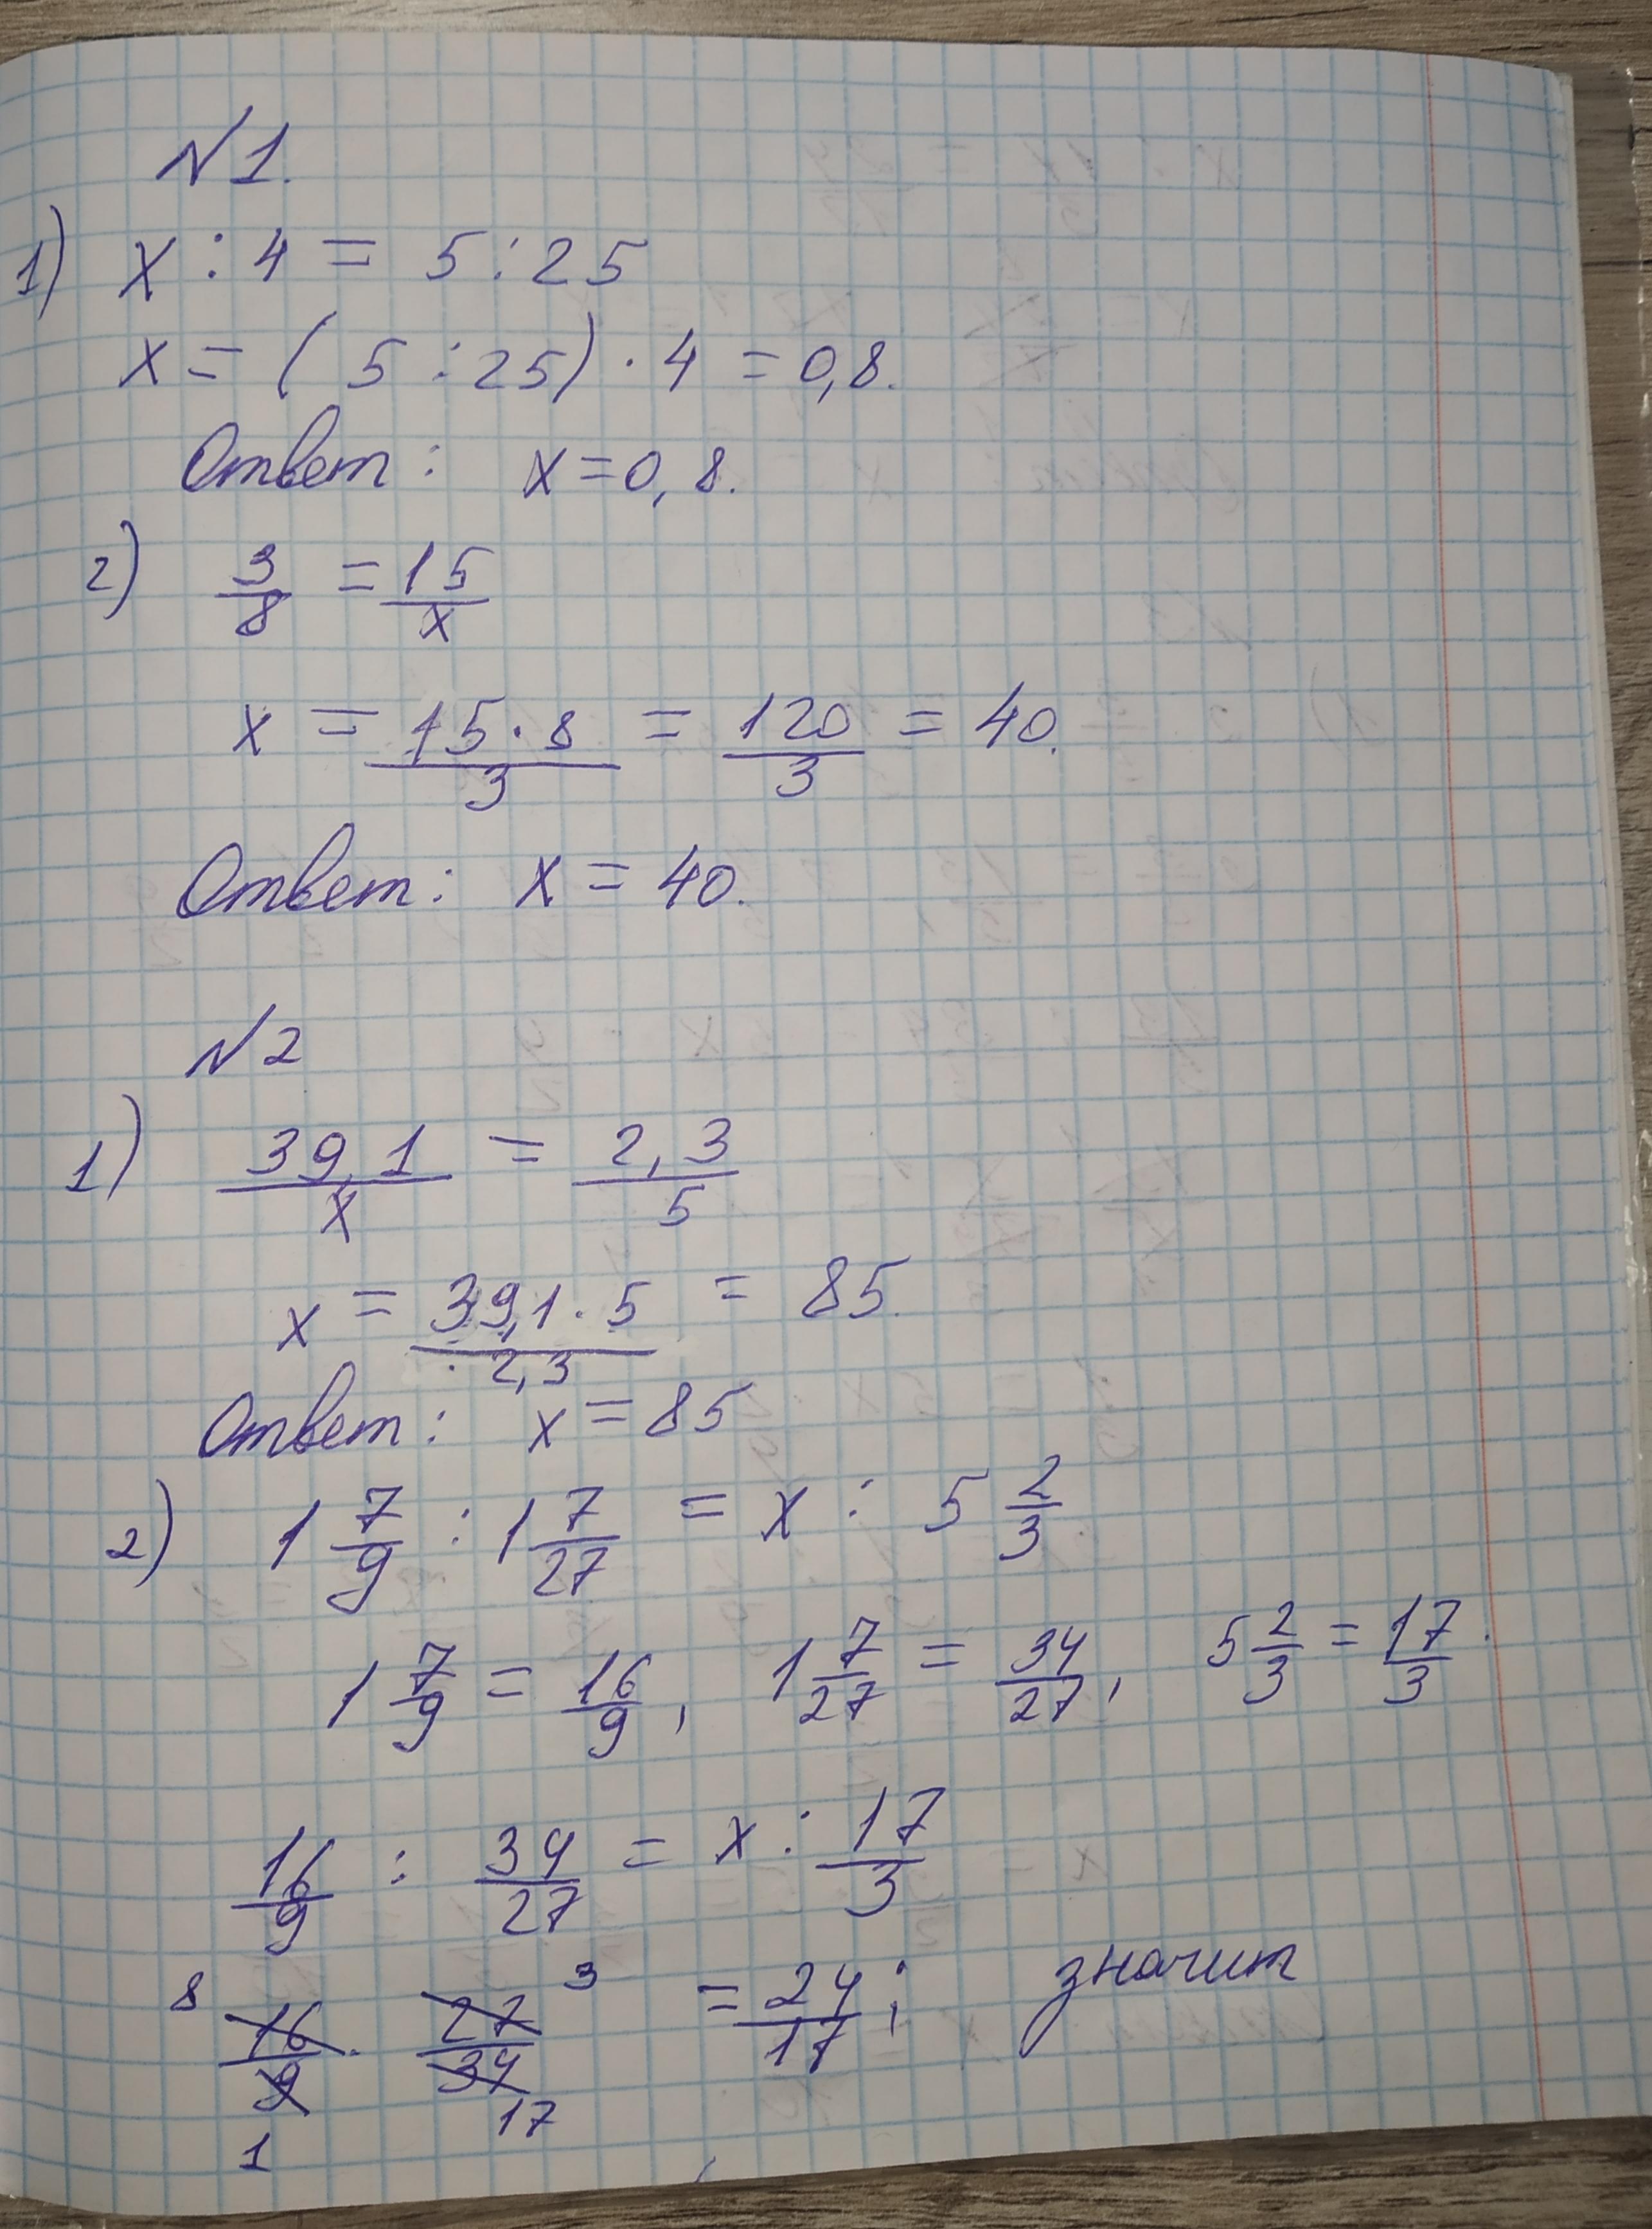 №1.
1) x : 4 = 5 : 25
x = (5 : 25) · 4 = 0,8.
Ответ: x = 0,8.
2) 3/8 = 15/x
x = 15·8/3 = 120/3 = 40.
Ответ: x = 40.
№2
1) 39,1/x = 2,3/5
x = 39,1·5/2,3 = 85.
Ответ: x = 85
2) 1 7/9 : 1 7/27 = x : 5 2/3
1 7/9 = 16/9, 1 7/27 = 34/27, 5 2/3 = 17/3.
16/9 : 34/27 = x : 17/3
8 16/9 1 · 27/34 3 17 = 24/17; значит